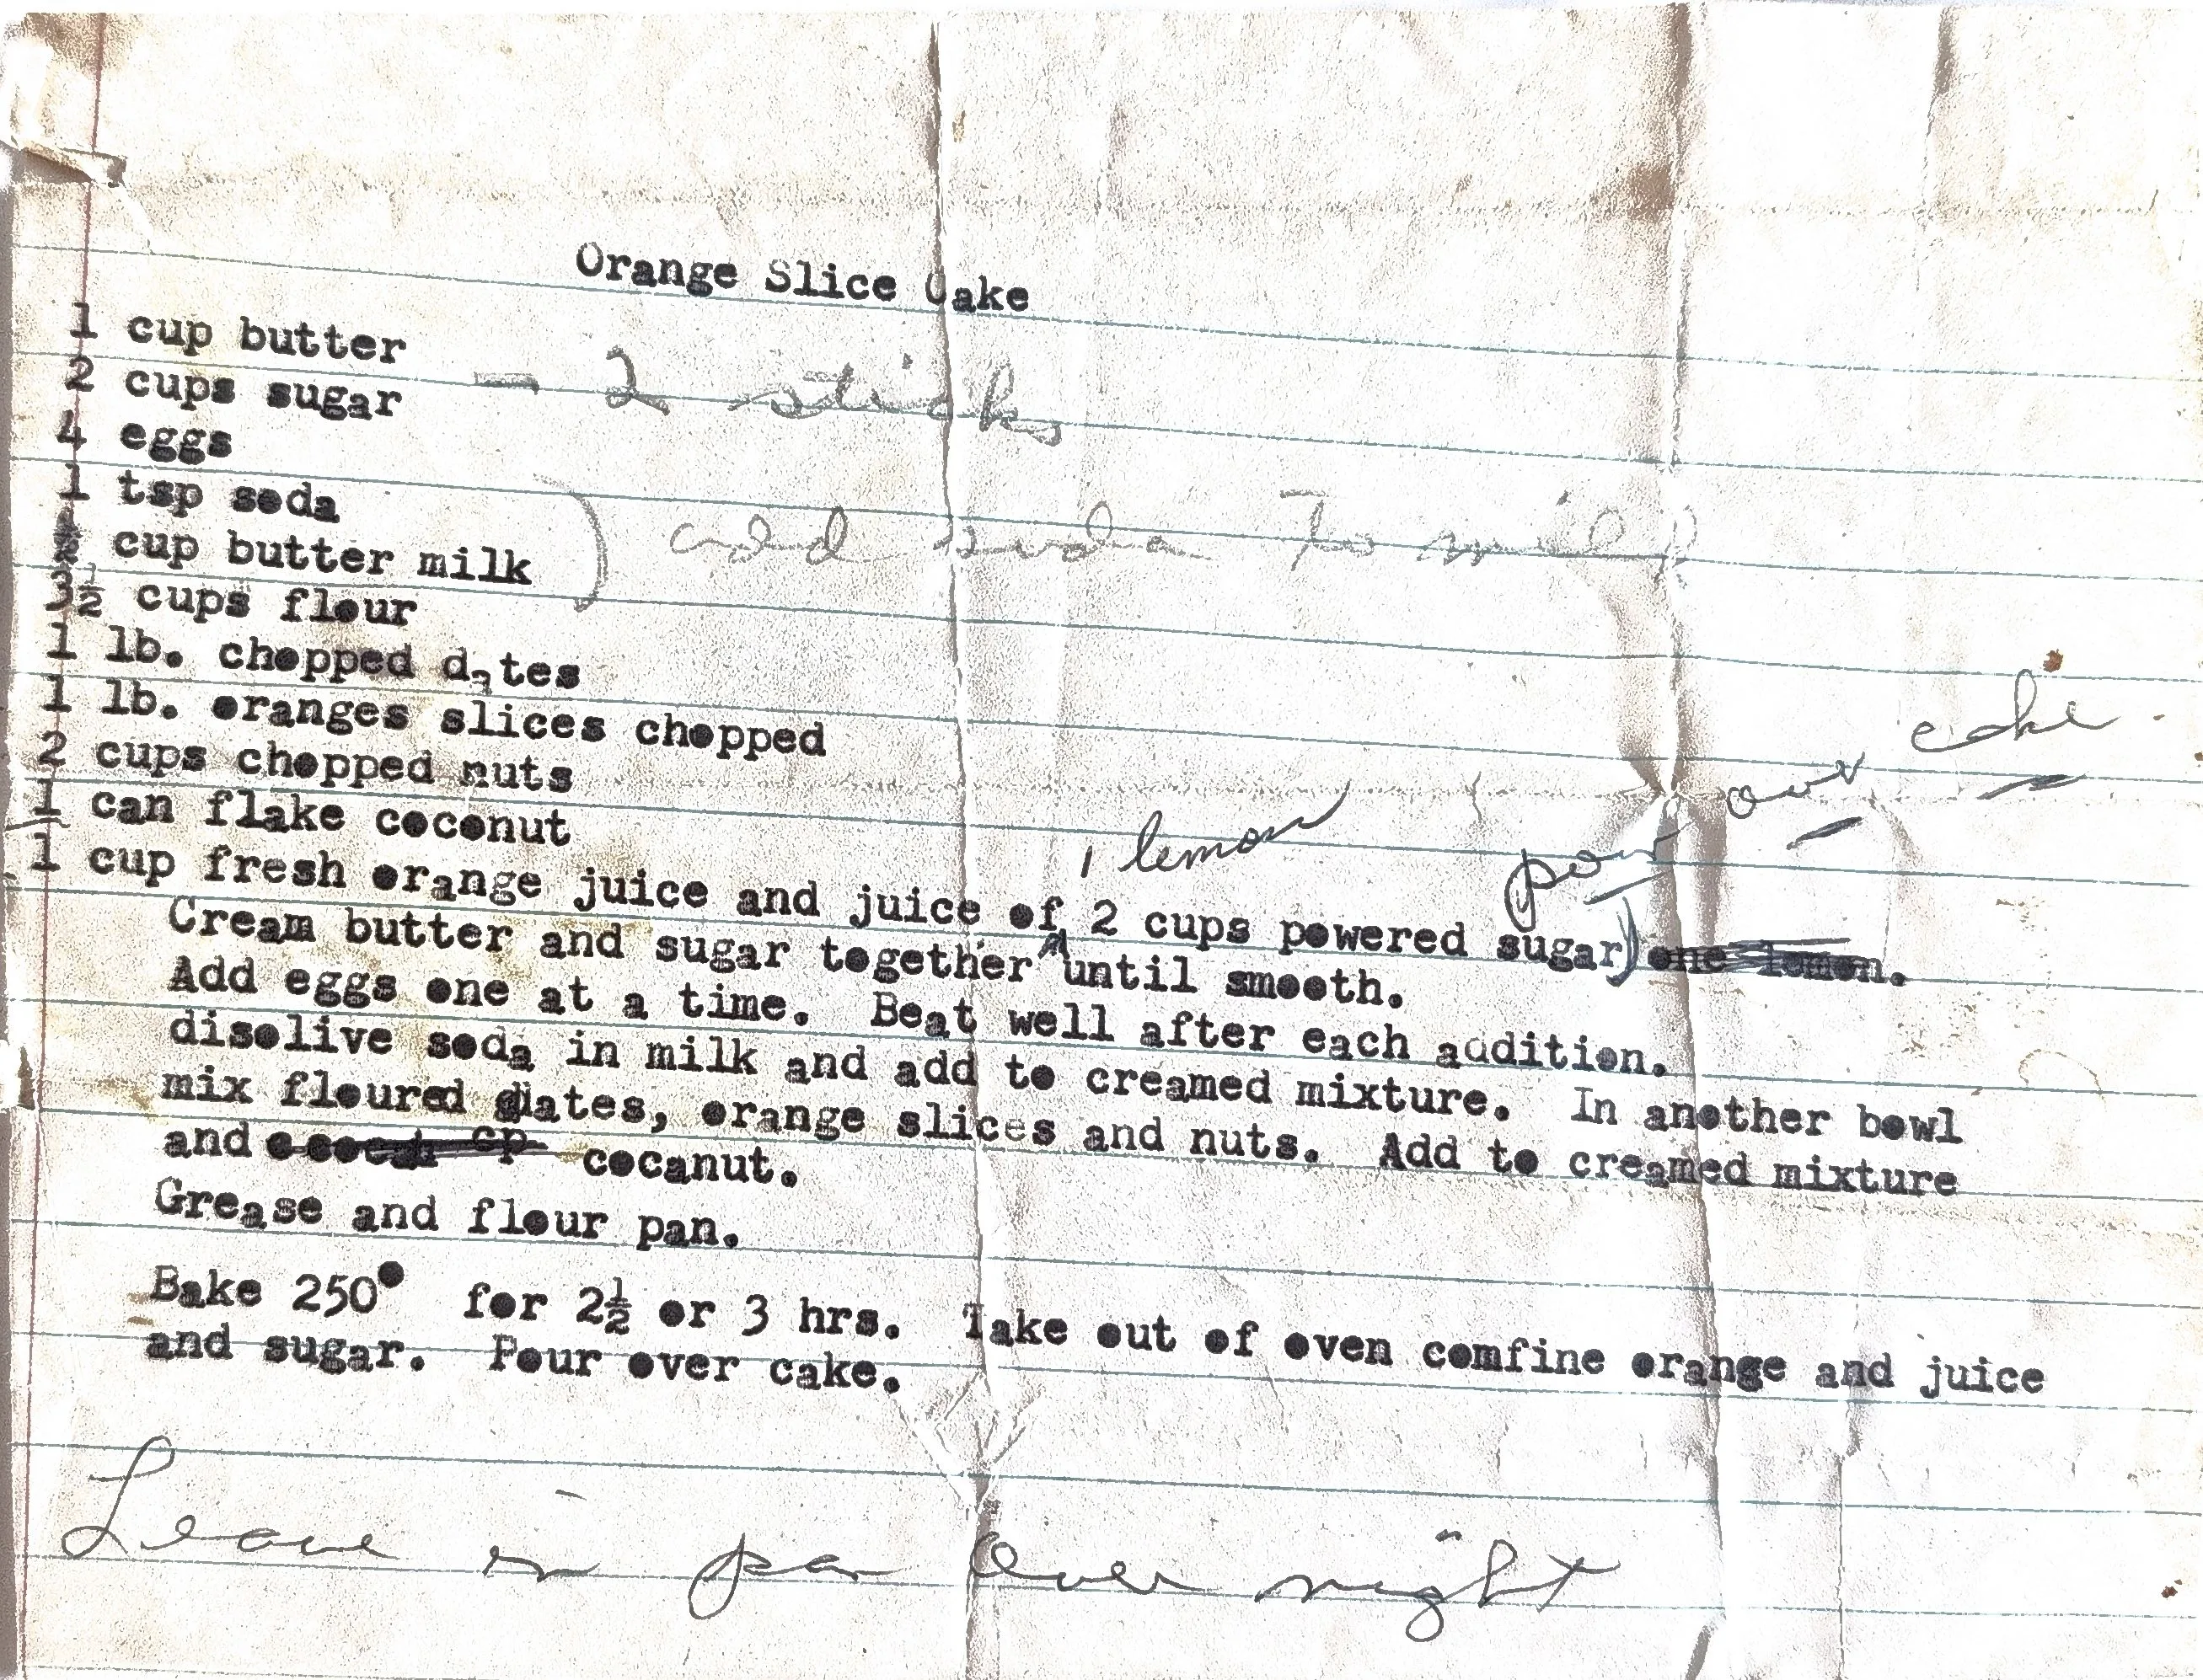 Orange Slice Cake
1 cup butter
2 cups sugar - 2 sticks
4 eggs
1 tsp soda
½ cup butter milk ) add soda to milk
3½ cups flour
1 lb. chopped dates
1 lb. oranges slices chopped
2 cups chopped nuts
1 can flake coconut
1 lemon pour over cake
1 cup fresh orange juice and juice of 2 cups powered sugar) one lemon.
Cream butter and sugar together until smooth.
Add eggs one at a time. Beat well after each addition.
disolive soda in milk and add to creamed mixture. In another bowl
mix floured dates, orange slices and nuts. Add to creamed mixture
and cocanut.
Grease and flour pan.
Bake 250° for 2½ or 3 hrs. Take out of oven comfine orange and juice
and sugar. Pour over cake.
Leave in pan over night